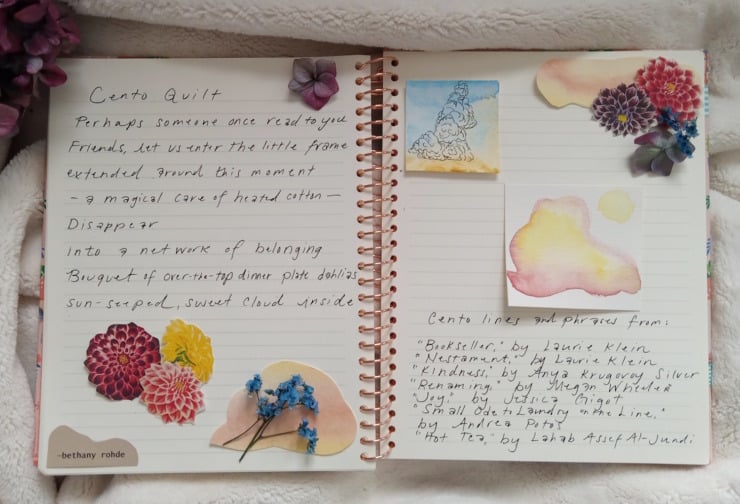 Cento Quilt
Perhaps someone once read to you
Friends, let us enter the little frame
extended around this moment
- a magical care of heated cotton -
Disappear
Into a network of belonging
Bouquet of over-the-top dinner plate dahlias
sun-steeped, sweet cloud inside
-bethany rohde
Cento lines and phrases from:
"Bookseller," by Laurie Klein
"Nestament," by Laurie Klein
"Kindness," by Anya Krugovoy Silver
"Renaming," by Megan Wheeler
"Joy," by Jessica Gigot
"Small Ode to Laundry on the Line,"
by Andrea Potos
"Hot Tea," by Lahab Assef Al-Jundi